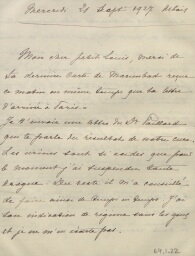 Mercredi 21 Sept. 1927
Mon cher petit Louis, merci de
ta dernière carte de Marienbad reçue
ce matin en même temps que ta lettre
d'arrivée à Paris.
Je t'envoie une lettre du Dr
qui te parle du résultat de notre cure
Les mêmes sont si acides que pour
le moment j'ai suspendu toute
Du reste il m'a conseillé
de faire ainsi de temps en temps. J'ai
son indication de régime sous les yeux
et je ne m'en écarte pas.
64.1.22